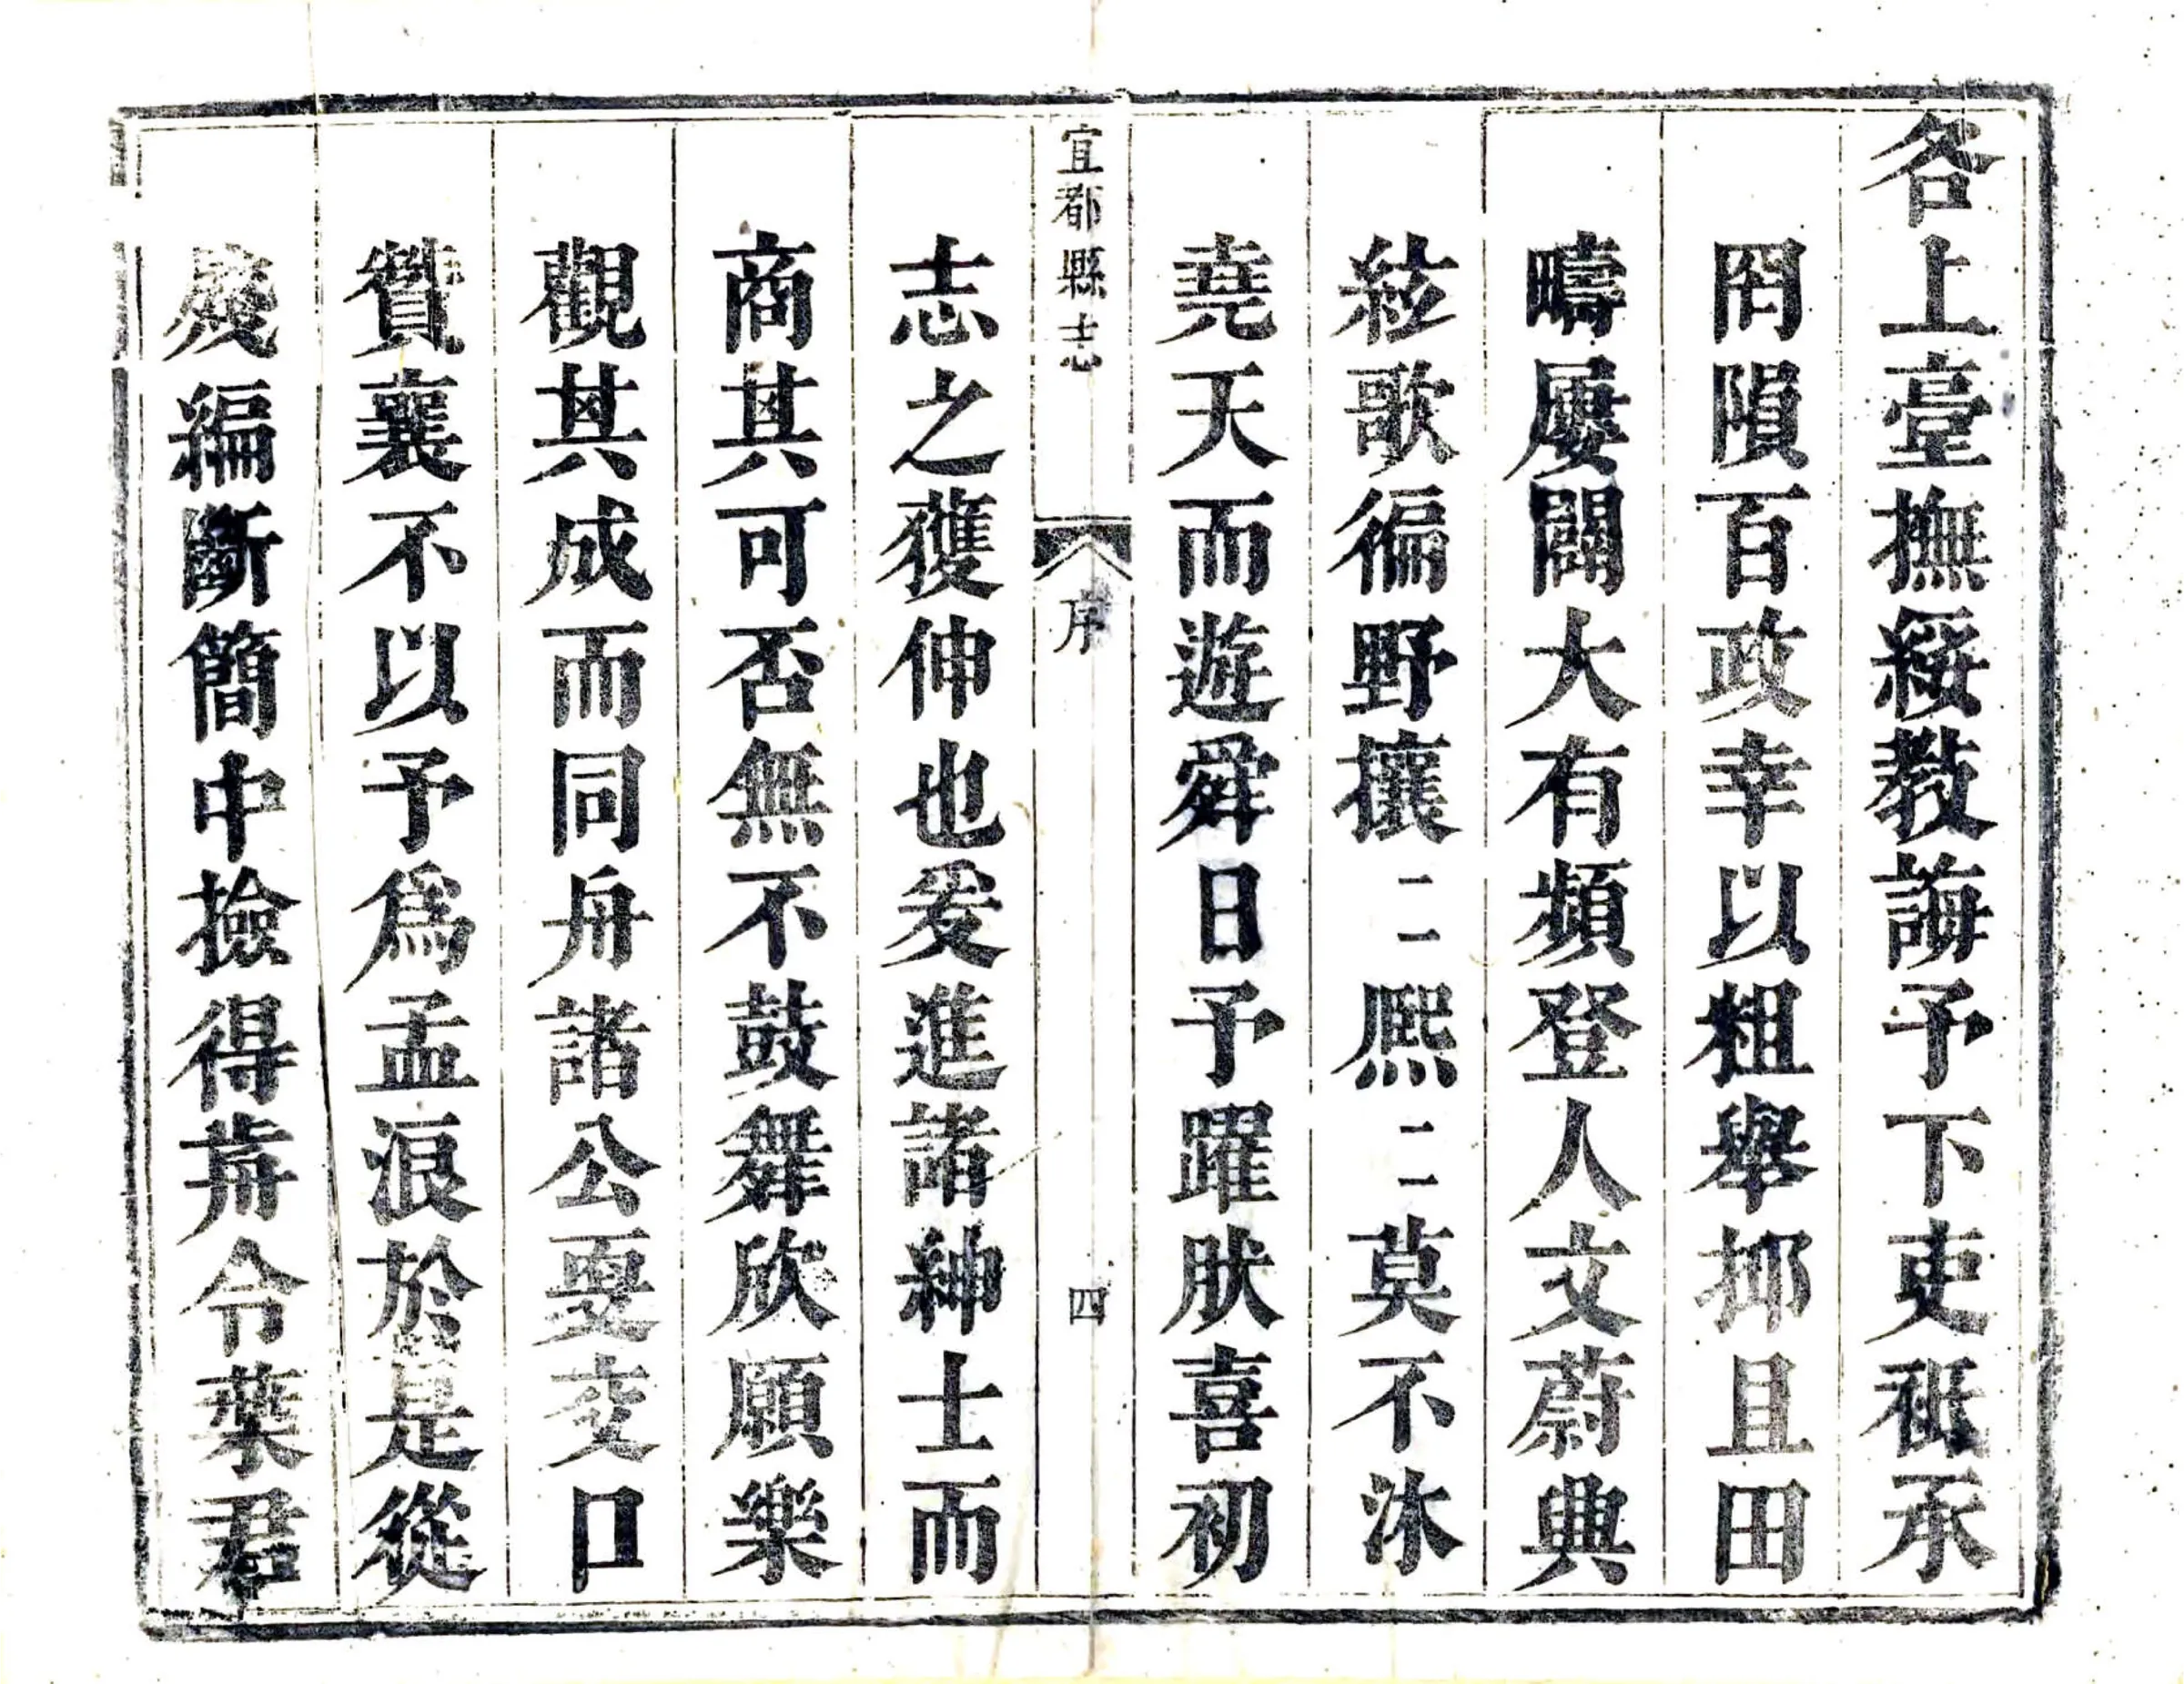 各上臺撫綏教誨予下吏祗承
罔隕百政幸以粗舉抑且田
疇屢闢大有頻登人文蔚典
絃歌徧野攘〻熙〻莫不沐
堯天而遊舜日予躍肰喜初
宜都縣志 序 四
志之獲伸也爰進諸紳士而
商其可否無不鼓舞欣願樂
觀其成而同舟諸公更交口
贊襄不以予爲孟浪於是從
殘編斷簡中撿得前令葉君